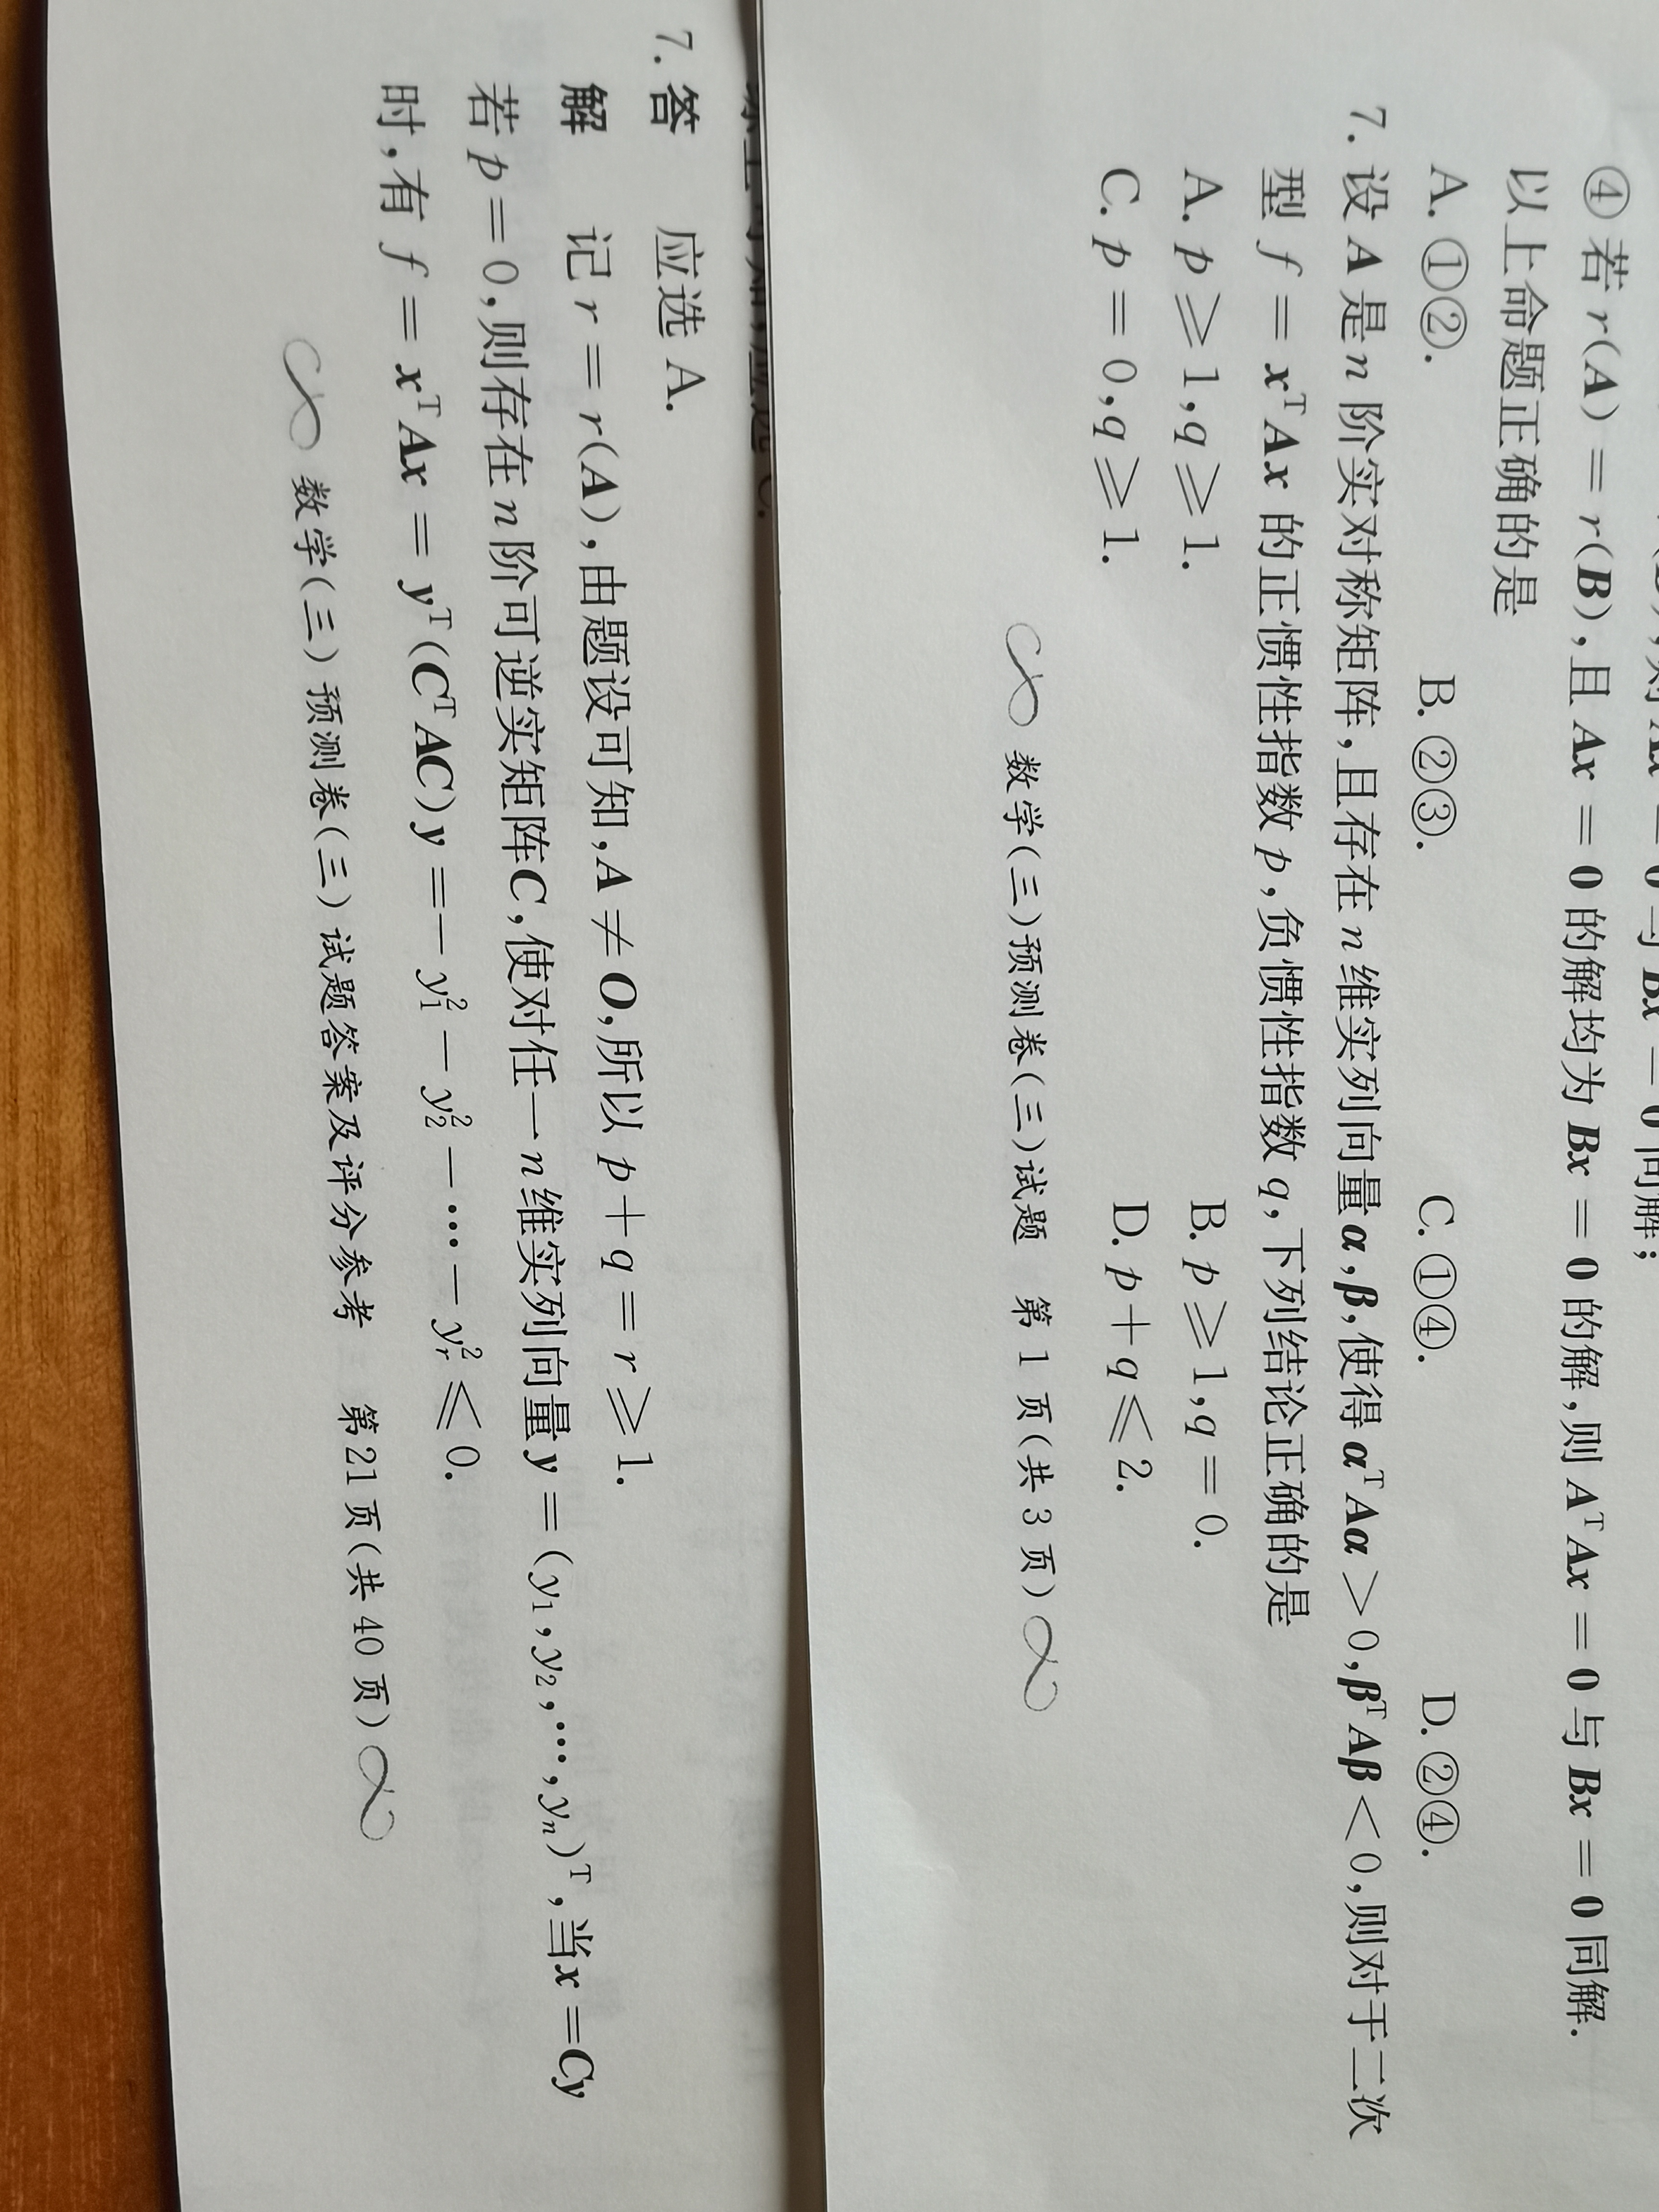 ④ 若 r(A) = r(B),且 Ax = 0 的解均为 Bx = 0 的解,则 AᵀAx = 0 与 Bx = 0 同解.
以上命题正确的是
A. ①②. B. ②③. C. ①④. D. ②④.
7. 设 A 是 n 阶实对称矩阵,且存在 n 维实列向量 α,β,使得 αᵀAα > 0,βᵀAβ < 0,则对于二次
型 f = xᵀAx 的正惯性指数 p,负惯性指数 q,下列结论正确的是
A. p ⩾ 1,q ⩾ 1. B. p ⩾ 1,q = 0.
C. p = 0,q ⩾ 1. D. p + q ⩽ 2.
数学(三)预测卷(三)试题 第 1 页(共 3 页)
7. 答 应选 A.
解 记 r = r(A),由题设可知,A ≠ O,所以 p + q = r ⩾ 1.
若 p = 0,则存在 n 阶可逆实矩阵 C,使对任一 n 维实列向量 y = (y₁,y₂,⋯,yₙ)ᵀ,当 x = Cy
时,有 f = xᵀAx = yᵀ(CᵀAC)y = − y₁² − y₂² − ⋯ − yᵣ² ⩽ 0.
数学(三)预测卷(三)试题答案及评分参考 第 21 页(共 40 页)